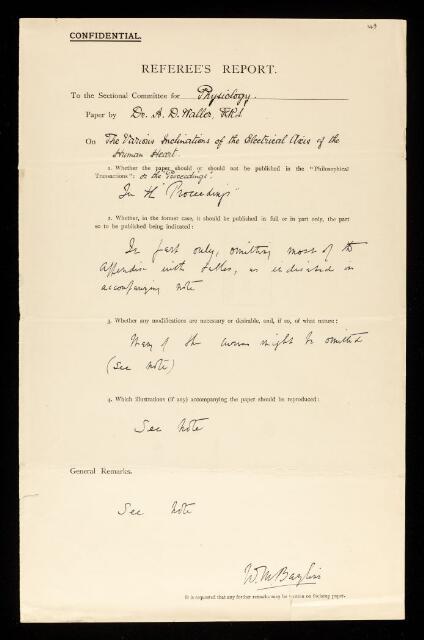 CONFIDENTIAL.
REFEREE'S REPORT.
To the Sectional Committee for Physiology.
Paper by Dr. A. D. Waller, F.R.S.
On The Various Inclinations of the Electrical Axis of the
Human Heart.
1. Whether the paper should or should not be published in the "Philosophical
Transactions": or the "Proceedings".
In the "Proceedings"
2. Whether, in the former case, it should be published in full or in part only, the part
so to be published being indicated:
In part only, omitting most of the
appendix with tables, as indicated in
accompanying note
3. Whether any modifications are necessary or desirable, and, if so, of what nature:
Many of the curves might be omitted
(see note)
4. Which illustrations (if any) accompanying the paper should be reproduced:
See note
General Remarks.
See note
W. M. Bayliss
It is requested that any further remarks may be written on the paper.